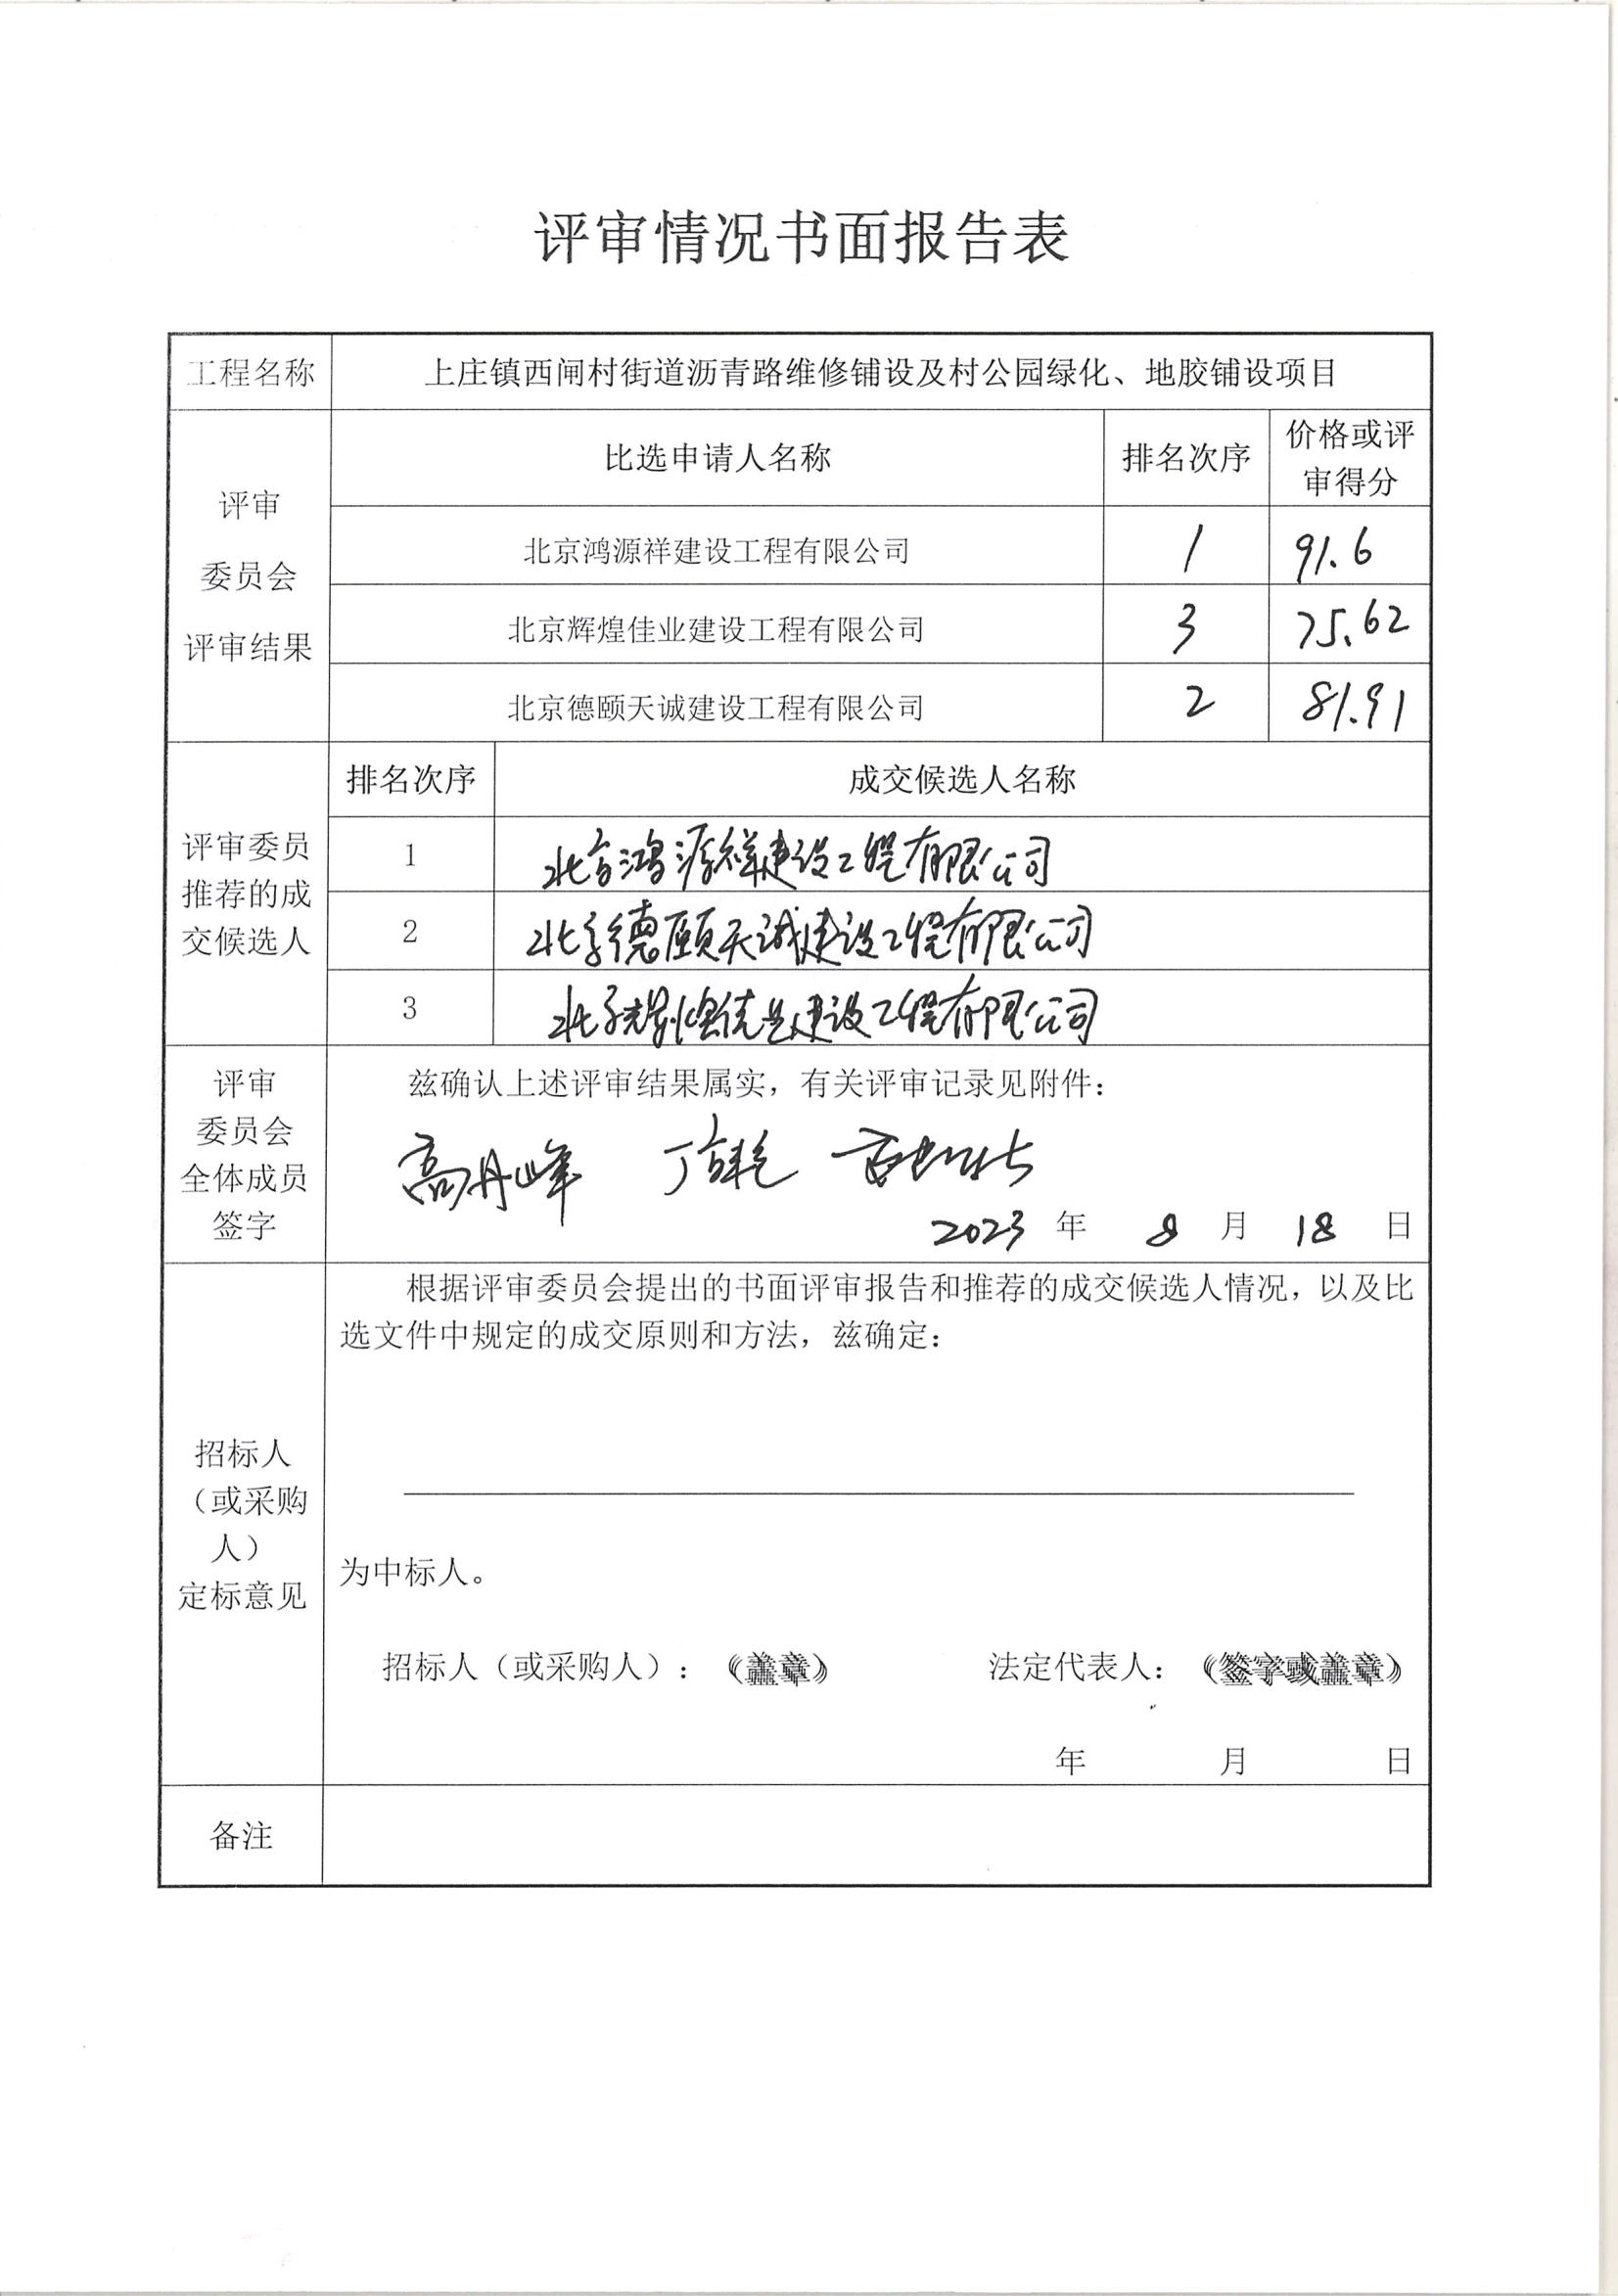 评审情况书面报告表
工程名称 上庄镇西闸村街道沥青路维修铺设及村公园绿化、地胶铺设项目
评审
委员会
评审结果
比选申请人名称 排名次序 价格或评
审得分
北京鸿源祥建设工程有限公司 1 91.6
北京辉煌佳业建设工程有限公司 3 75.62
北京德颐天诚建设工程有限公司 2 81.91
评审委员
推荐的成
交候选人
排名次序 成交候选人名称
1 北京鸿源祥建设工程有限公司
2 北京德颐天诚建设工程有限公司
3 北京辉煌佳业建设工程有限公司
评审
委员会
全体成员
签字
兹确认上述评审结果属实，有关评审记录见附件：
高丹峰
2023 年 8 月 18 日
招标人
（或采购
人）
定标意见
根据评审委员会提出的书面评审报告和推荐的成交候选人情况，以及比
选文件中规定的成交原则和方法，兹确定：
为中标人。
招标人（或采购人）：（盖章） 法定代表人：（签字或盖章）
年 月 日
备注